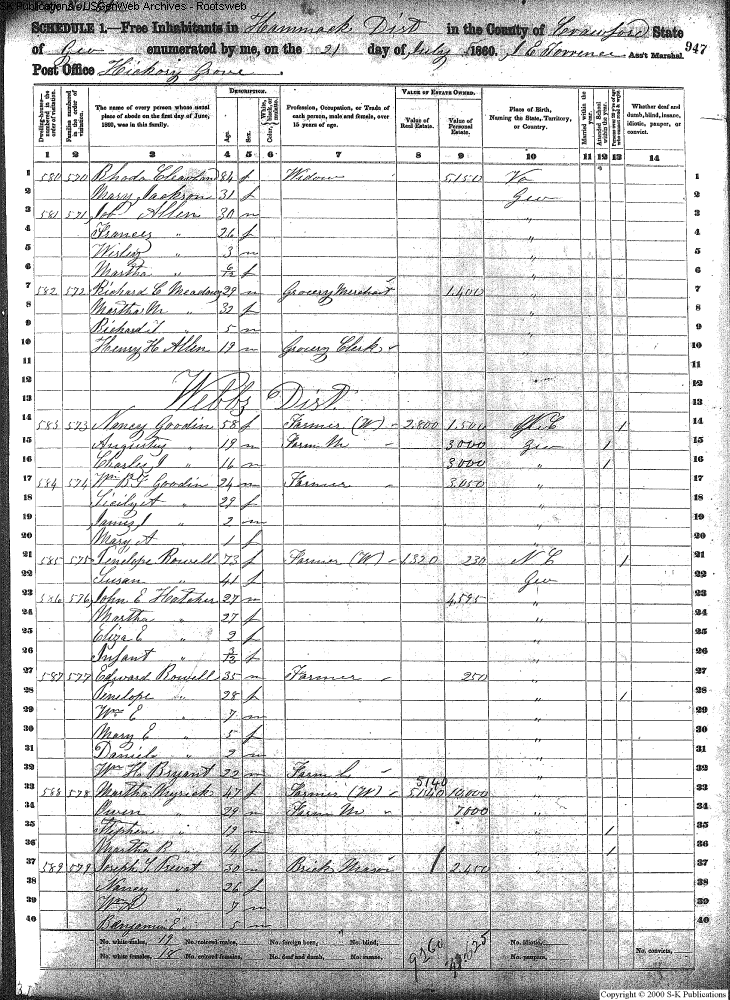 SK Publications / USGenWeb Archives - Rootsweb
SCHEDULE 1.—Free Inhabitants in Hammack Dist in the County of Crawford State
of Geo enumerated by me, on the 21 day of July 1860. J E Torrence Ass't Marshal. 947
Post Office Hickory Grove.
DESCRIPTION. VALUE OF ESTATE OWNED.
Dwelling-houses—numbered in the order of visitation. Families numbered in the order of visitation. The name of every person whose usual place of abode on the first day of June, 1860, was in this family. Age. Sex. Color, White, black, or mulatto. Profession, Occupation, or Trade of each person, male and female, over 15 years of age. Value of Real Estate. Value of Personal Estate. Place of Birth, Naming the State, Territory, or Country. Married within the year. Attended School within the year. Persons over 20 y'rs of age who cannot read & write. Whether deaf and dumb, blind, insane, idiotic, pauper, or convict.
1 2 3 4 5 6 7 8 9 10 11 12 13 14
1 580 570 Rhoda 84 f Widow 5150 Va 1
2 Mary Jackson 31 f Geo 2
3 581 571 Allen 30 m " 3
4 Frances " 26 f " 4
5 Wesley " 3 m " 5
6 Martha " 6/12 f " 6
7 582 572 Richard C Meadows 29 m Grocery Merchant 1,400 " 7
8 Martha M " 32 f " 8
9 Richard " 5 m " 9
10 Henry H Allen 19 m Grocery Clerk " 10
11 11
12 12
13 Webbs Dist. 13
14 583 573 Nancy Goodin 58 f Farmer (W) 2,800 1,500 N.C 1 14
15 Augustus " 19 m Farm M 3000 Geo 1 15
16 Charles J " 16 m 3000 " 1 16
17 584 574 Wm B F Goodin 24 m Farmer 3,050 " 17
18 29 f " 18
19 James J " 2 m " 19
20 Mary A " 1 f " 20
21 585 575 Penelope Rowell 73 f Farmer (W) 1,320 230 N C 1 21
22 Susan " 41 f Geo 22
23 586 576 John E Hatcher 27 m 4,595 " 23
24 Martha " 27 f " 24
25 Eliza E " 2 f " 25
26 Infant " 3/12 f " 26
27 587 577 Edward Rowell 35 m Farmer 250 " 27
28 Penelope " 28 f " 1 28
29 Wm E " 7 m " 29
30 Mary E " 5 f " 30
31 Daniel " 2 m " 31
32 Wm H. Bryant 22 m Farm L " 32
33 588 578 Martha Myrick 47 f Farmer (W) 5140 5140 10,000 " 33
34 Owen " 29 m Farm M 7000 " 34
35 Stephen " 19 m " 1 35
36 Martha " 14 f " 1 36
37 589 579 Joseph Prevat 30 m Brick Mason 2,450 " 37
38 Nancy " 26 f " 38
39 " 7 m " 39
40 Benjamin E " 5 m " 40
No. white males, 19 No. colored males, No. foreign born, No. blind, No. idiotic,
No. white females, 18 No. colored females, No. deaf and dumb, No. insane, 9260 No. paupers, No. convicts,
Copyright © 2000 S-K Publications